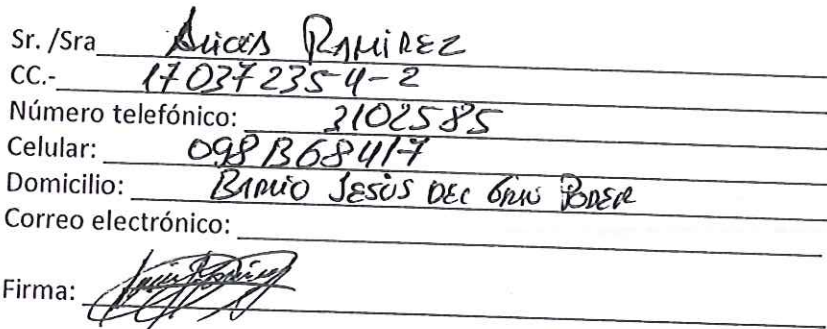 Sr. /Sra Alicia RAMIREZ
CC.- 170372354-2
Número telefónico: 3102585
Celular: 0981368417
Domicilio: BARRIO JESÚS DEL GRAN PODER
Correo electrónico:
Firma: